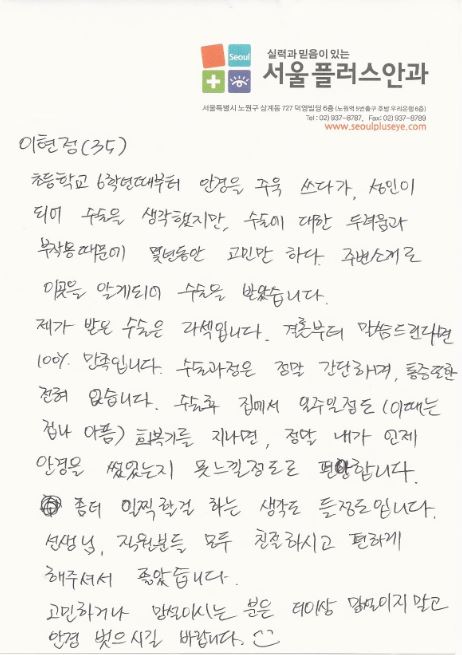 Seoul
실력과 믿음이 있는
서울플러스안과
서울특별시 노원구 상계동 727 덕영빌딩 6층 (노원역 5번출구 주방 우리은행 6층)
Tel : 02) 937-8787, Fax: 02) 937-8789
www.seoulpluseye.com
이현정(35)
초등학교 6학년때부터 안경을 주욱 쓰다가, 성인이
되어 수술을 생각했지만, 수술에 대한 두려움과
부작용때문에 몇년동안 고민만 하다. 주변소개로
이곳을 알게되어 수술을 받았습니다.
제가 받은 수술은 라섹입니다. 결론부터 말씀드린다면
100% 만족입니다. 수술과정은 정말 간단하며, 통증또한
전혀 없습니다. 수술후 집에서 일주일정도 (이때는
겁나 아픔) 회복기를 지나면, 정말 내가 언제
안경을 썼었는지 못느낄정도로 편합니다.
좀더 일찍할걸 하는 생각도 들정도입니다.
선생님, 직원분들 모두 친절하시고 편하게
해주셔서 좋았습니다.
고민하거나 망설이시는 분은 더이상 망설이지 말고
안경 벗으시길 바랍니다.